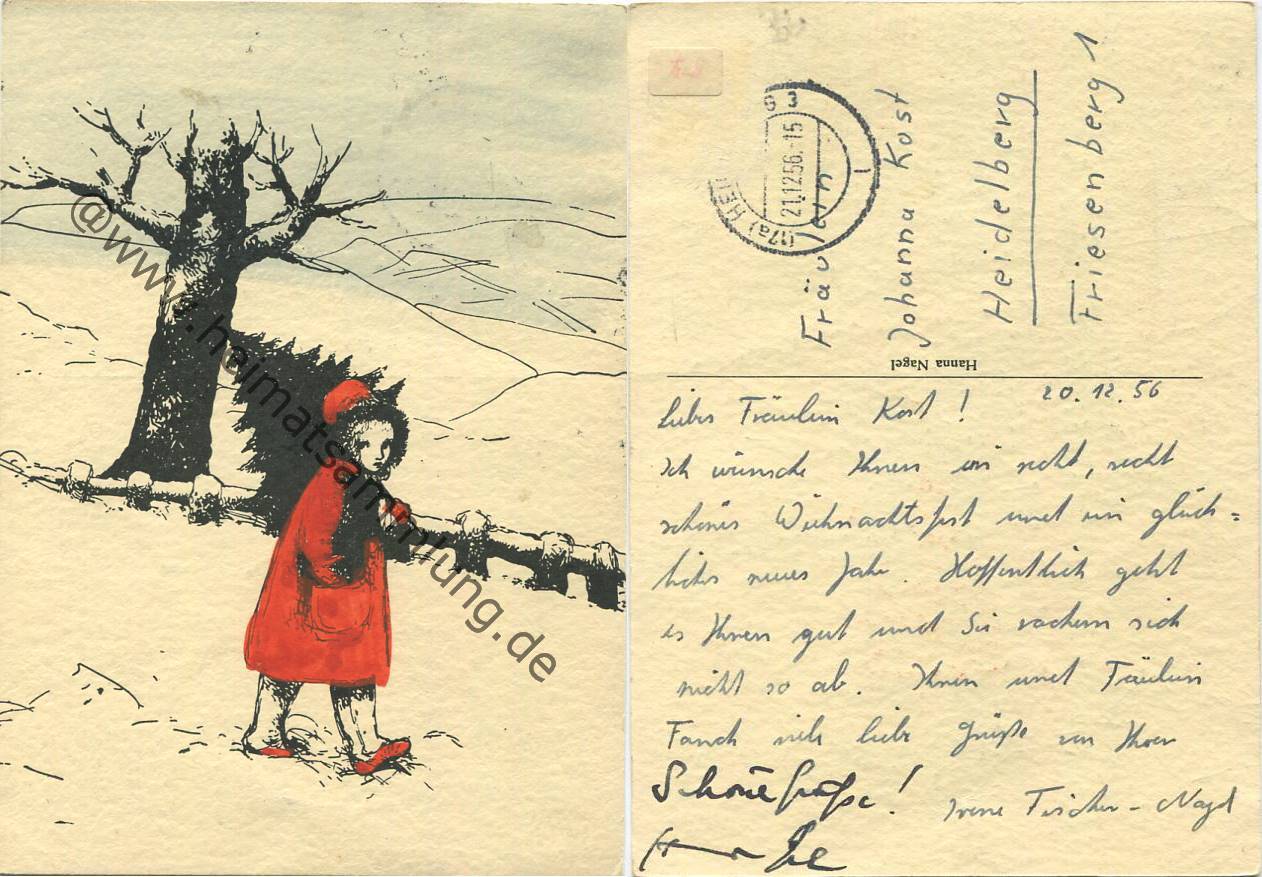 @www.heimatsammlung.de
(17a) HEI
21.12.56.-15
Fräulein
Johanna Kost
Heidelberg
Friesenberg 1
Hanna Nagel
20.12.56
Liebes Fräulein Kost!
Ich wünsche Ihnen ein recht, recht
schönes Weihnachtsfest und ein glück=
liches neues Jahr. Hoffentlich geht
es Ihnen gut und Sie rackern sich
nicht so ab. Ihnen und Fräulein
viele liebe Grüße von Ihrer
Irene Fischer-Nagel
Schöne Grüße!